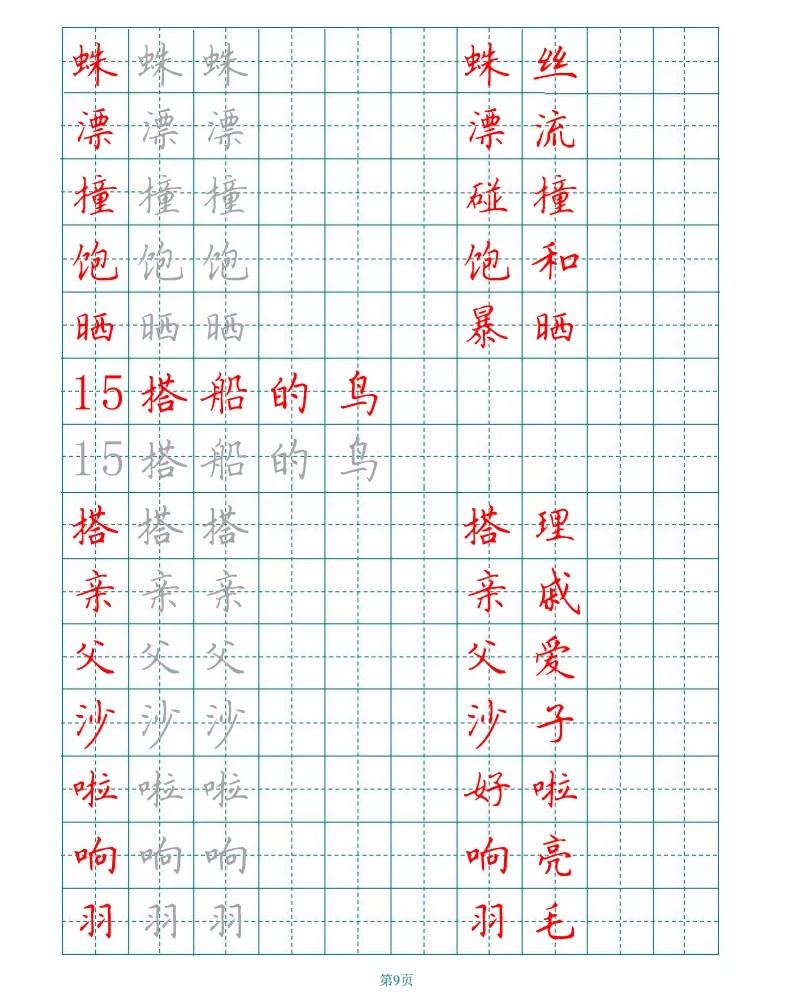 蛛 蛛 蛛 蛛 丝
漂 漂 漂 漂 流
撞 撞 撞 碰 撞
饱 饱 饱 饱 和
晒 晒 晒 暴 晒
15 搭 船 的 鸟
15 搭 船 的 鸟
搭 搭 搭 搭 理
亲 亲 亲 亲 戚
父 父 父 父 爱
沙 沙 沙 沙 子
啦 啦 啦 好 啦
响 响 响 响 亮
羽 羽 羽 羽 毛
第9页